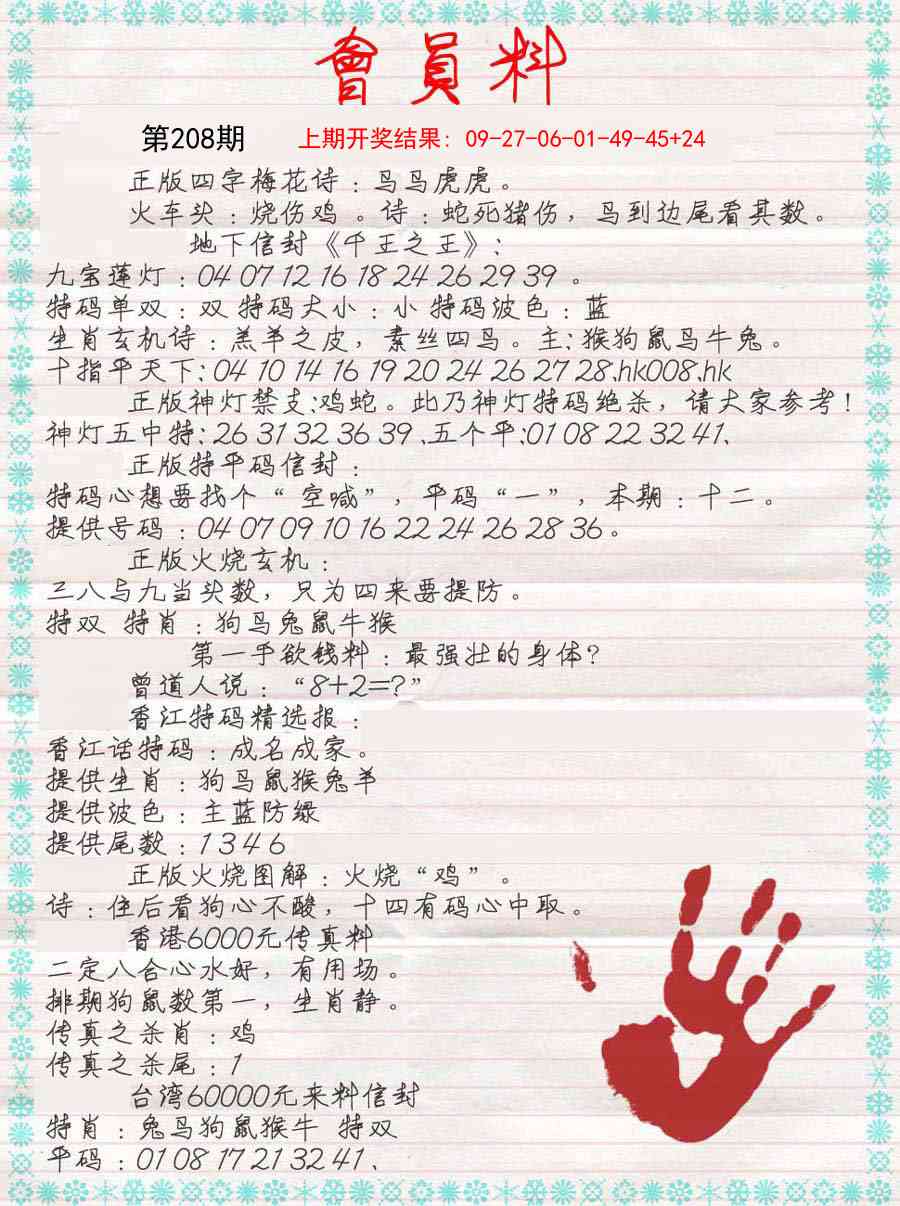 會員料
第208期 上期开奖结果：09-27-06-01-49-45+24
正版四字梅花诗：马马虎虎。
火车头：烧伤鸡 。诗：蛇死猪伤，马到边尾看其数。
地下信封《千王之王》：
九宝莲灯：04 07 12 16 18 24 26 29 39 。
特码单双：双 特码大小：小 特码波色：蓝
生肖玄机诗：羔羊之皮，素丝四马。主：猴狗鼠马牛兔。
十指平天下：04 10 14 16 19 20 24 26 27 28.hk008.hk
正版神灯禁支:鸡蛇。此乃神灯特码绝杀，请大家参考！
神灯五中特：26 31 32 36 39 、五个平：01 08 22 32 41、
正版特平码信封：
特码心想要找个“空喊”，平码“一”，本期：十二。
提供号码：04 07 09 10 16 22 24 26 28 36。
正版火烧玄机：
三八与九当头数，只为四来要提防。
特双 特肖：狗马兔鼠牛猴
第一手欲钱料：最强壮的身体？
曾道人说：“8+2=?”
香江特码精选报：
香江话特码：成名成家。
提供生肖：狗马鼠猴兔羊
提供波色：主蓝防绿
提供尾数：1 3 4 6
正版火烧图解：火烧“鸡”。
诗：住后看狗心不酸，十四有码心中取。
香港6000元传真料
二定八合心水好，有用场。
排期狗鼠数第一，生肖静。
传真之杀肖：鸡
传真之杀尾：1
台湾60000元来料信封
特肖：兔马狗鼠猴牛 特双
平码：01 08 17 21 32 41、